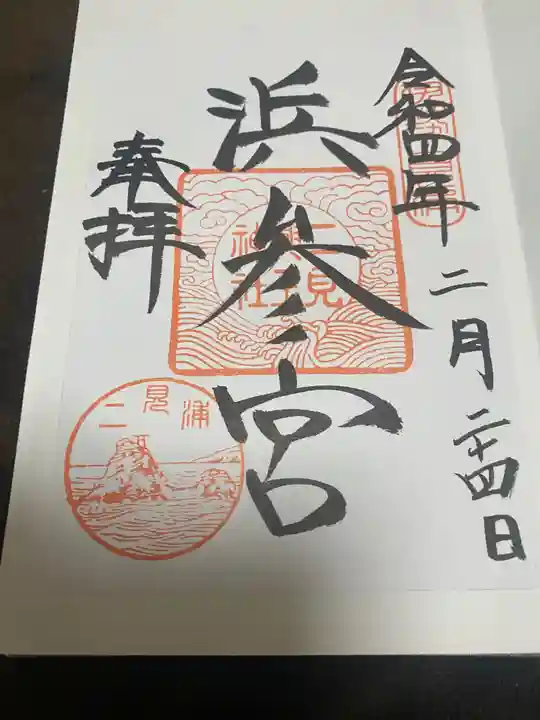 令和四年二月二十四日
浜参宮
奉拝
二見
興玉
神社
二見浦